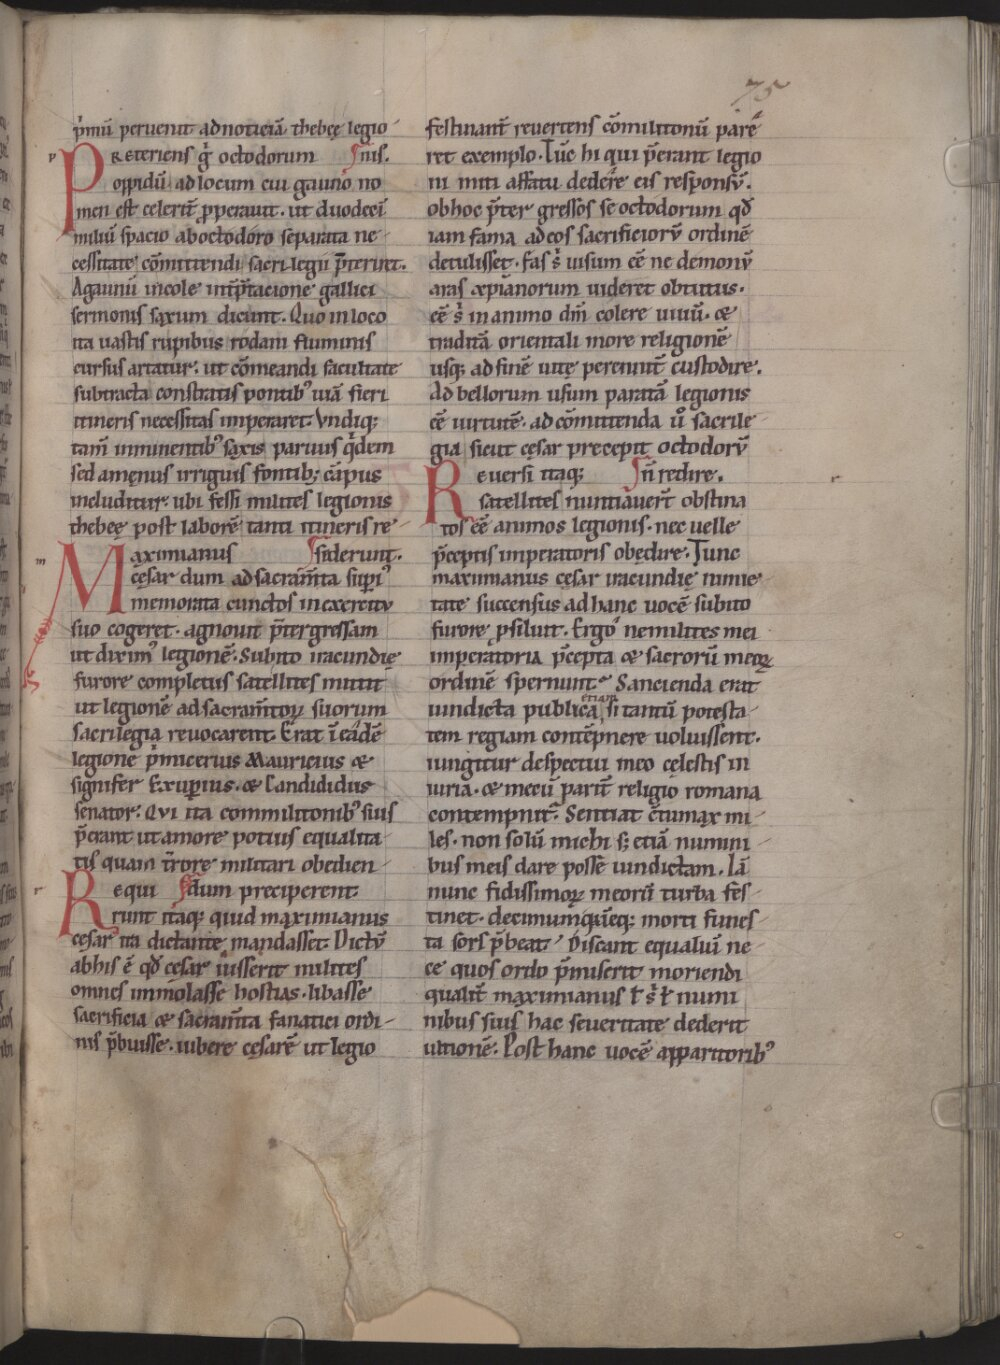 75
p̾mū peruenit ad noticiā thebęę legio-
PReteriens g̾ octodorum nis.
oppidū ad locum cui gauno no
men est celerit̄ p̱perauit. ut duodeci
miliū spacio ab octodoro separata ne-
cessitate cōmittendi sacrilegii p̄teriret.
Agaunū incole int̄p̄tacione gallici
sermonis saxum dicunt. Quo in loco
ita uastis rupibus rodani fluminis
cursus artatur. ut cōmeandi facultate
subtracta constratis pontib᾽ uiā fieri
itineris necessitas imperaret. Vndiq;
tam̄ inminentib᾽ saxis paruus q̾dem
sed amęnus irriguis fontib; cāpus
includitur. ubi fessi milites legionis
thebęę post laborē tanti itineris re-
Maximianus siderunt.
cęsar dum ad sacram̄ta sup̱i᾽
memorata cunctos in exercitu
suo cogeret. agnouit p̄tergressam
ut dixim᾽ legionē. Subito iracundię
furore completus satellites mittit
ut legionē ad sacram̄toꝝ suorum
sacrilegia reuocarent. Erat ī eadē
legione p̾micerius Mauricius ⁊
signifer Exup̱ius. ⁊ Candididus
senator. Qui ita commilitonib᾽ suis
p̄erant ut amore potius equalita-
tis quam t̄rore militari obedien-
Requi dum preciperent.
runt itaq; quid maximianus
cęsar ita dictante mandasset. Dictū
ab his ē qd̄ cęsar iusserit milites
omnes immolasse hostias. libasse
sacrificia ⁊ sacram̄ta fanatici ordi-
nis p̄buisse. iubere cęsarē ut legio
festinant̄ reuertens cōmilitonū pare-
ret exemplo. Tūc hi qui p̄erant legio
ni miti affatu dedere eis responsū.
ob hoc p̄ter gressos se octodorum qd̄
iam fama ad eos sacrificiorū ordinē
detulisset. fas s᾽ uisum eē ne demonū
aras xp̄ianorum uideret obtutus.
eē s᾽ in animo dm̄ colere uiuū. ⁊
traditā orientali more religionē
usq; ad finē uitę perennit̄ custodire.
Ad bellorum usum paratā legionis
eē uirtutē. ad cōmittenda u̾o sacrile-
gia sicut cęsar precepit octodorū
Reuersi itaq; n̄ redire.
satellites nuntiauer̄t obstina
tos eē animos legionis. nec uelle
p̄ceptis imperatoris obędire. Tunc
maximianus cęsar iracundię nimie-
tate succensus ad hanc uocē subito
furore p̱siluit. Ergo ne milites mei
imperatoria p̄cepta ⁊ sacrorū meoꝝ
ordinē spernunt. Sancienda erat
uindicta publica etiam si tantū potesta-
tem regiam contēpnere uoluissent.
iungitur despectui meo cęlestis in
iuria. ⁊ mecū parit̄ religio romana
contempnit̄. Sentiat c̄tumax mi-
les. non solū michi s; etiā numini-
bus meis dare posse uindictam. Iā
nunc fidissimoꝝ meorū turba fes-
tinet. decimumquēq; morti funes-
ta sors p̄beat. Discant equaliū ne-
ce quos ordo p̄miserit moriendi
qualit̄ maximianus ł s᾽ ł numi
nibus suis hac seueritate dederit
ultionē. Post hanc uocē apparitorib᾽